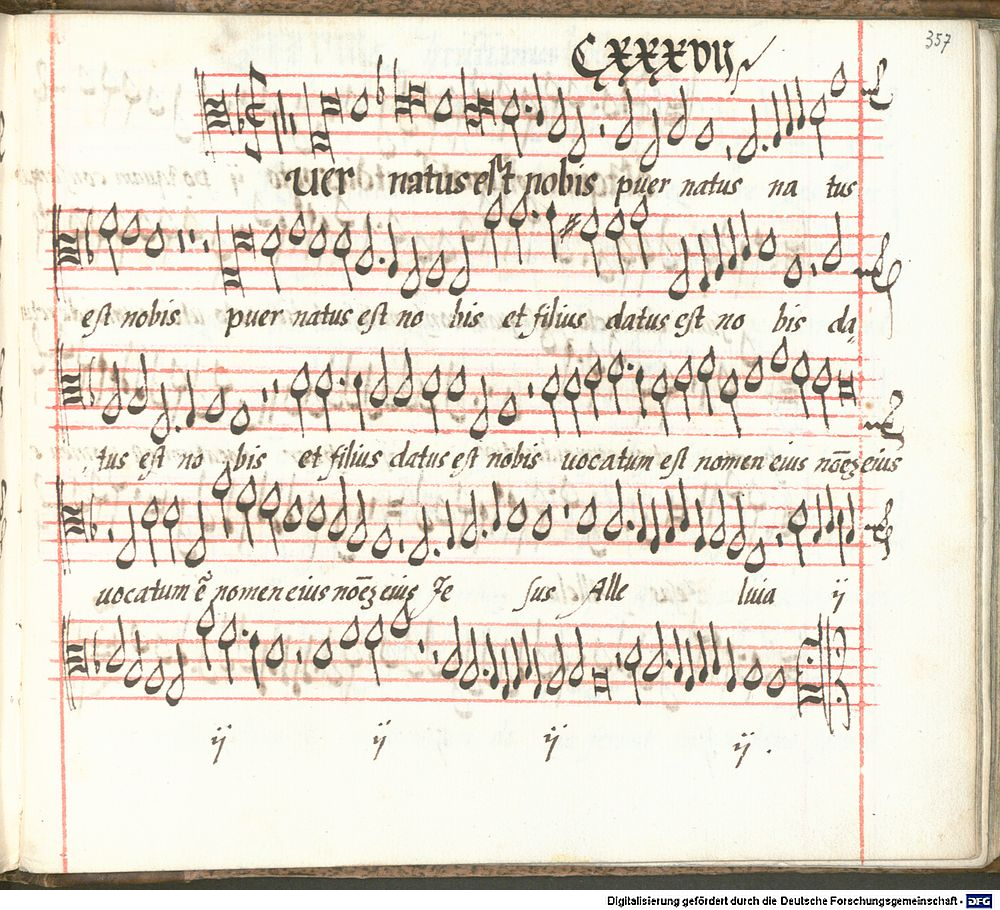 357
CXXXVII
uer natus est nobis puer natus na tus
est nobis puer natus est no bis et filius datus est no bis da
tus est no bis et filius datus est nobis uocatum est nomen eius nōēʒ eius
uocatum ē nomen eius nōēʒ eius Je sus Alle luia ij
ij ij ij ij.
Digitalisierung gefördert durch die Deutsche Forschungsgemeinschaft - DFG